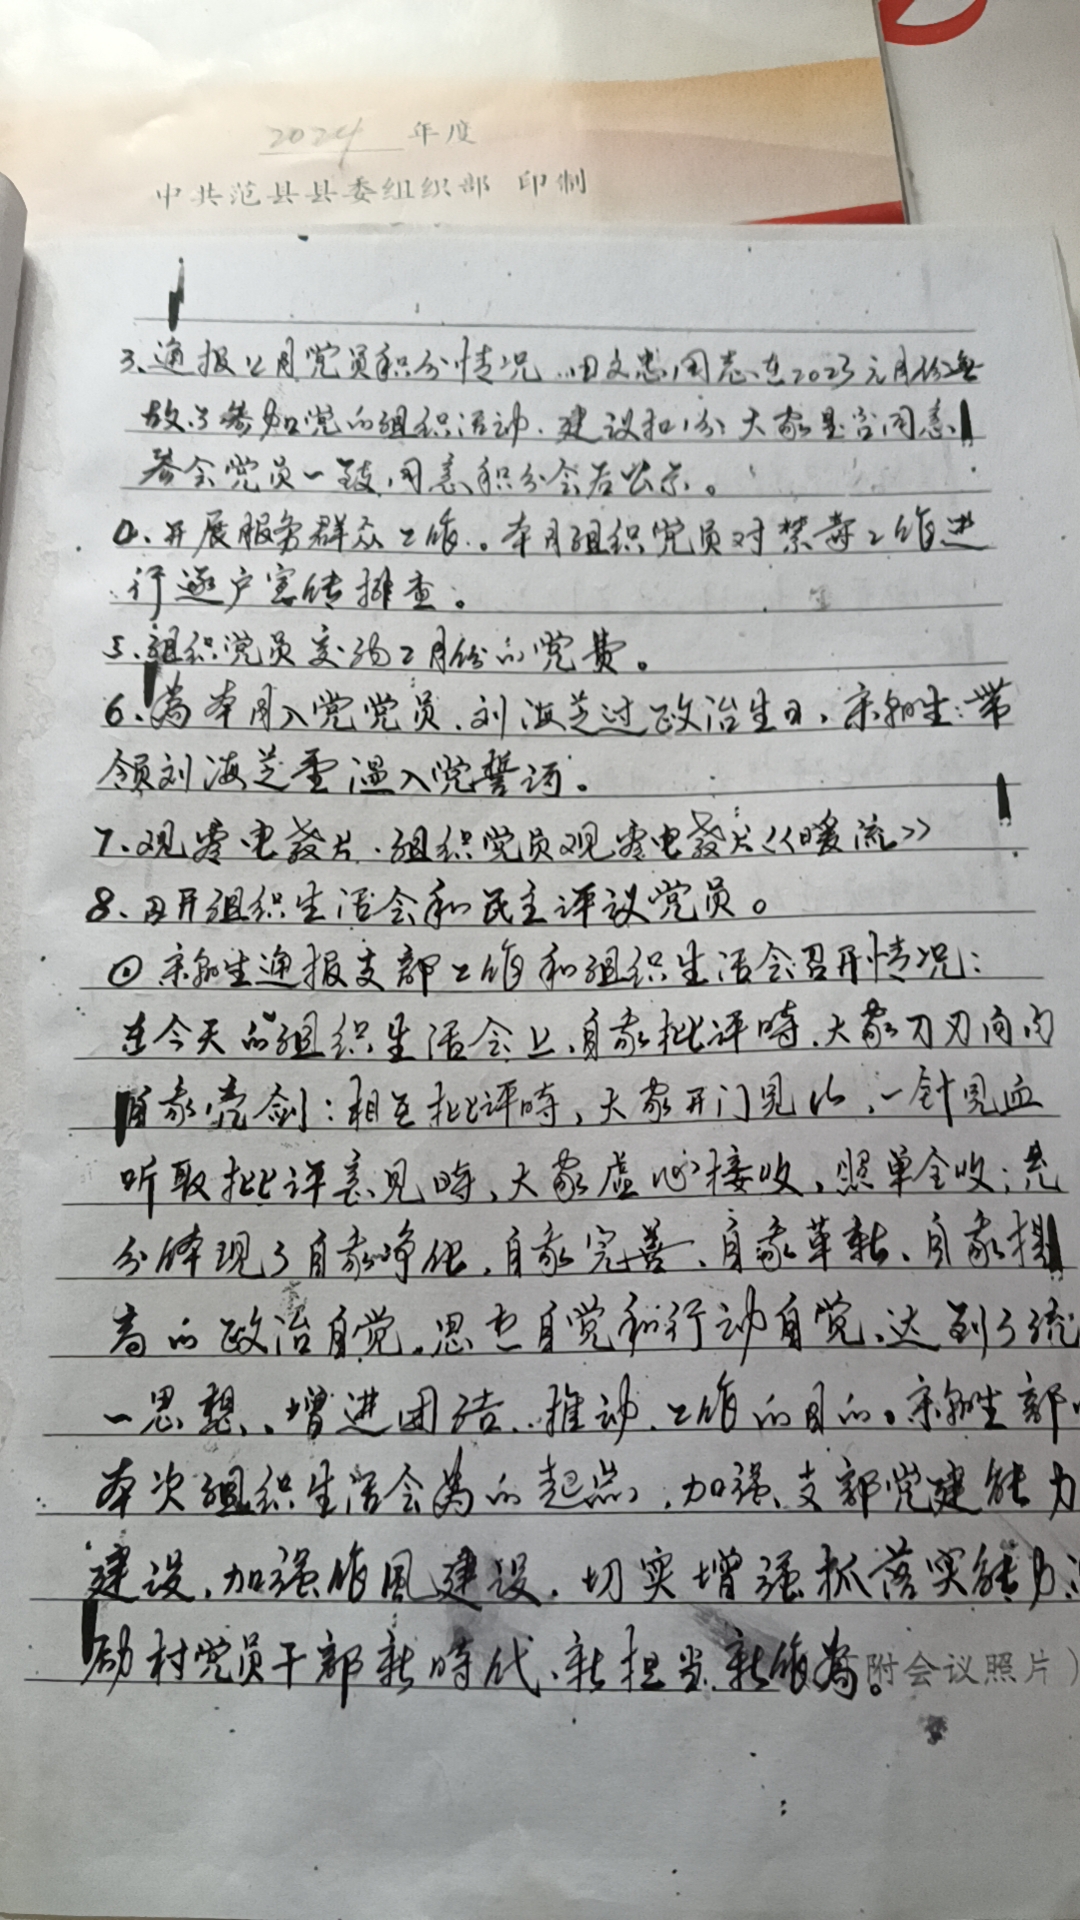 2024 年度
中共范县县委组织部 印制
3、通报上月党员积分情况. 田文忠同志在2023元月份无
故不参加党的组织活动. 建议扣1分 大家是否同意
参会党员一致同意积分会后公示。
4、开展服务群众工作. 本月组织党员对禁毒工作进
行逐户宣传排查。
5、组织党员交纳2月份的党费。
6、为本月入党党员. 刘海芝过政治生日, 带
领刘海芝重温入党誓词。
7、观看电教片. 组织党员观看电教片《暖流》
8、召开组织生活会和民主评议党员。
① 通报支部工作和组织生活会召开情况:
在今天的组织生活会上, 自我批评時, 大家刀刃向内
自我亮剑; 相互批评時, 大家开门见山, 一针见血
听取批评意见時, 大家虚心接收, 照单全收; 充
分体现了自我净化、自我完善、自我革新、自我提
高的政治自觉, 思想自觉和行动自觉, 达到了统
一思想、增进团结、推动工作的目的。
本次组织生活会为的起点, 加强支部党建能力
建设, 加强作风建设, 切实增强抓落实能力
励村党员干部新時代、新担当新作為。
附会议照片)